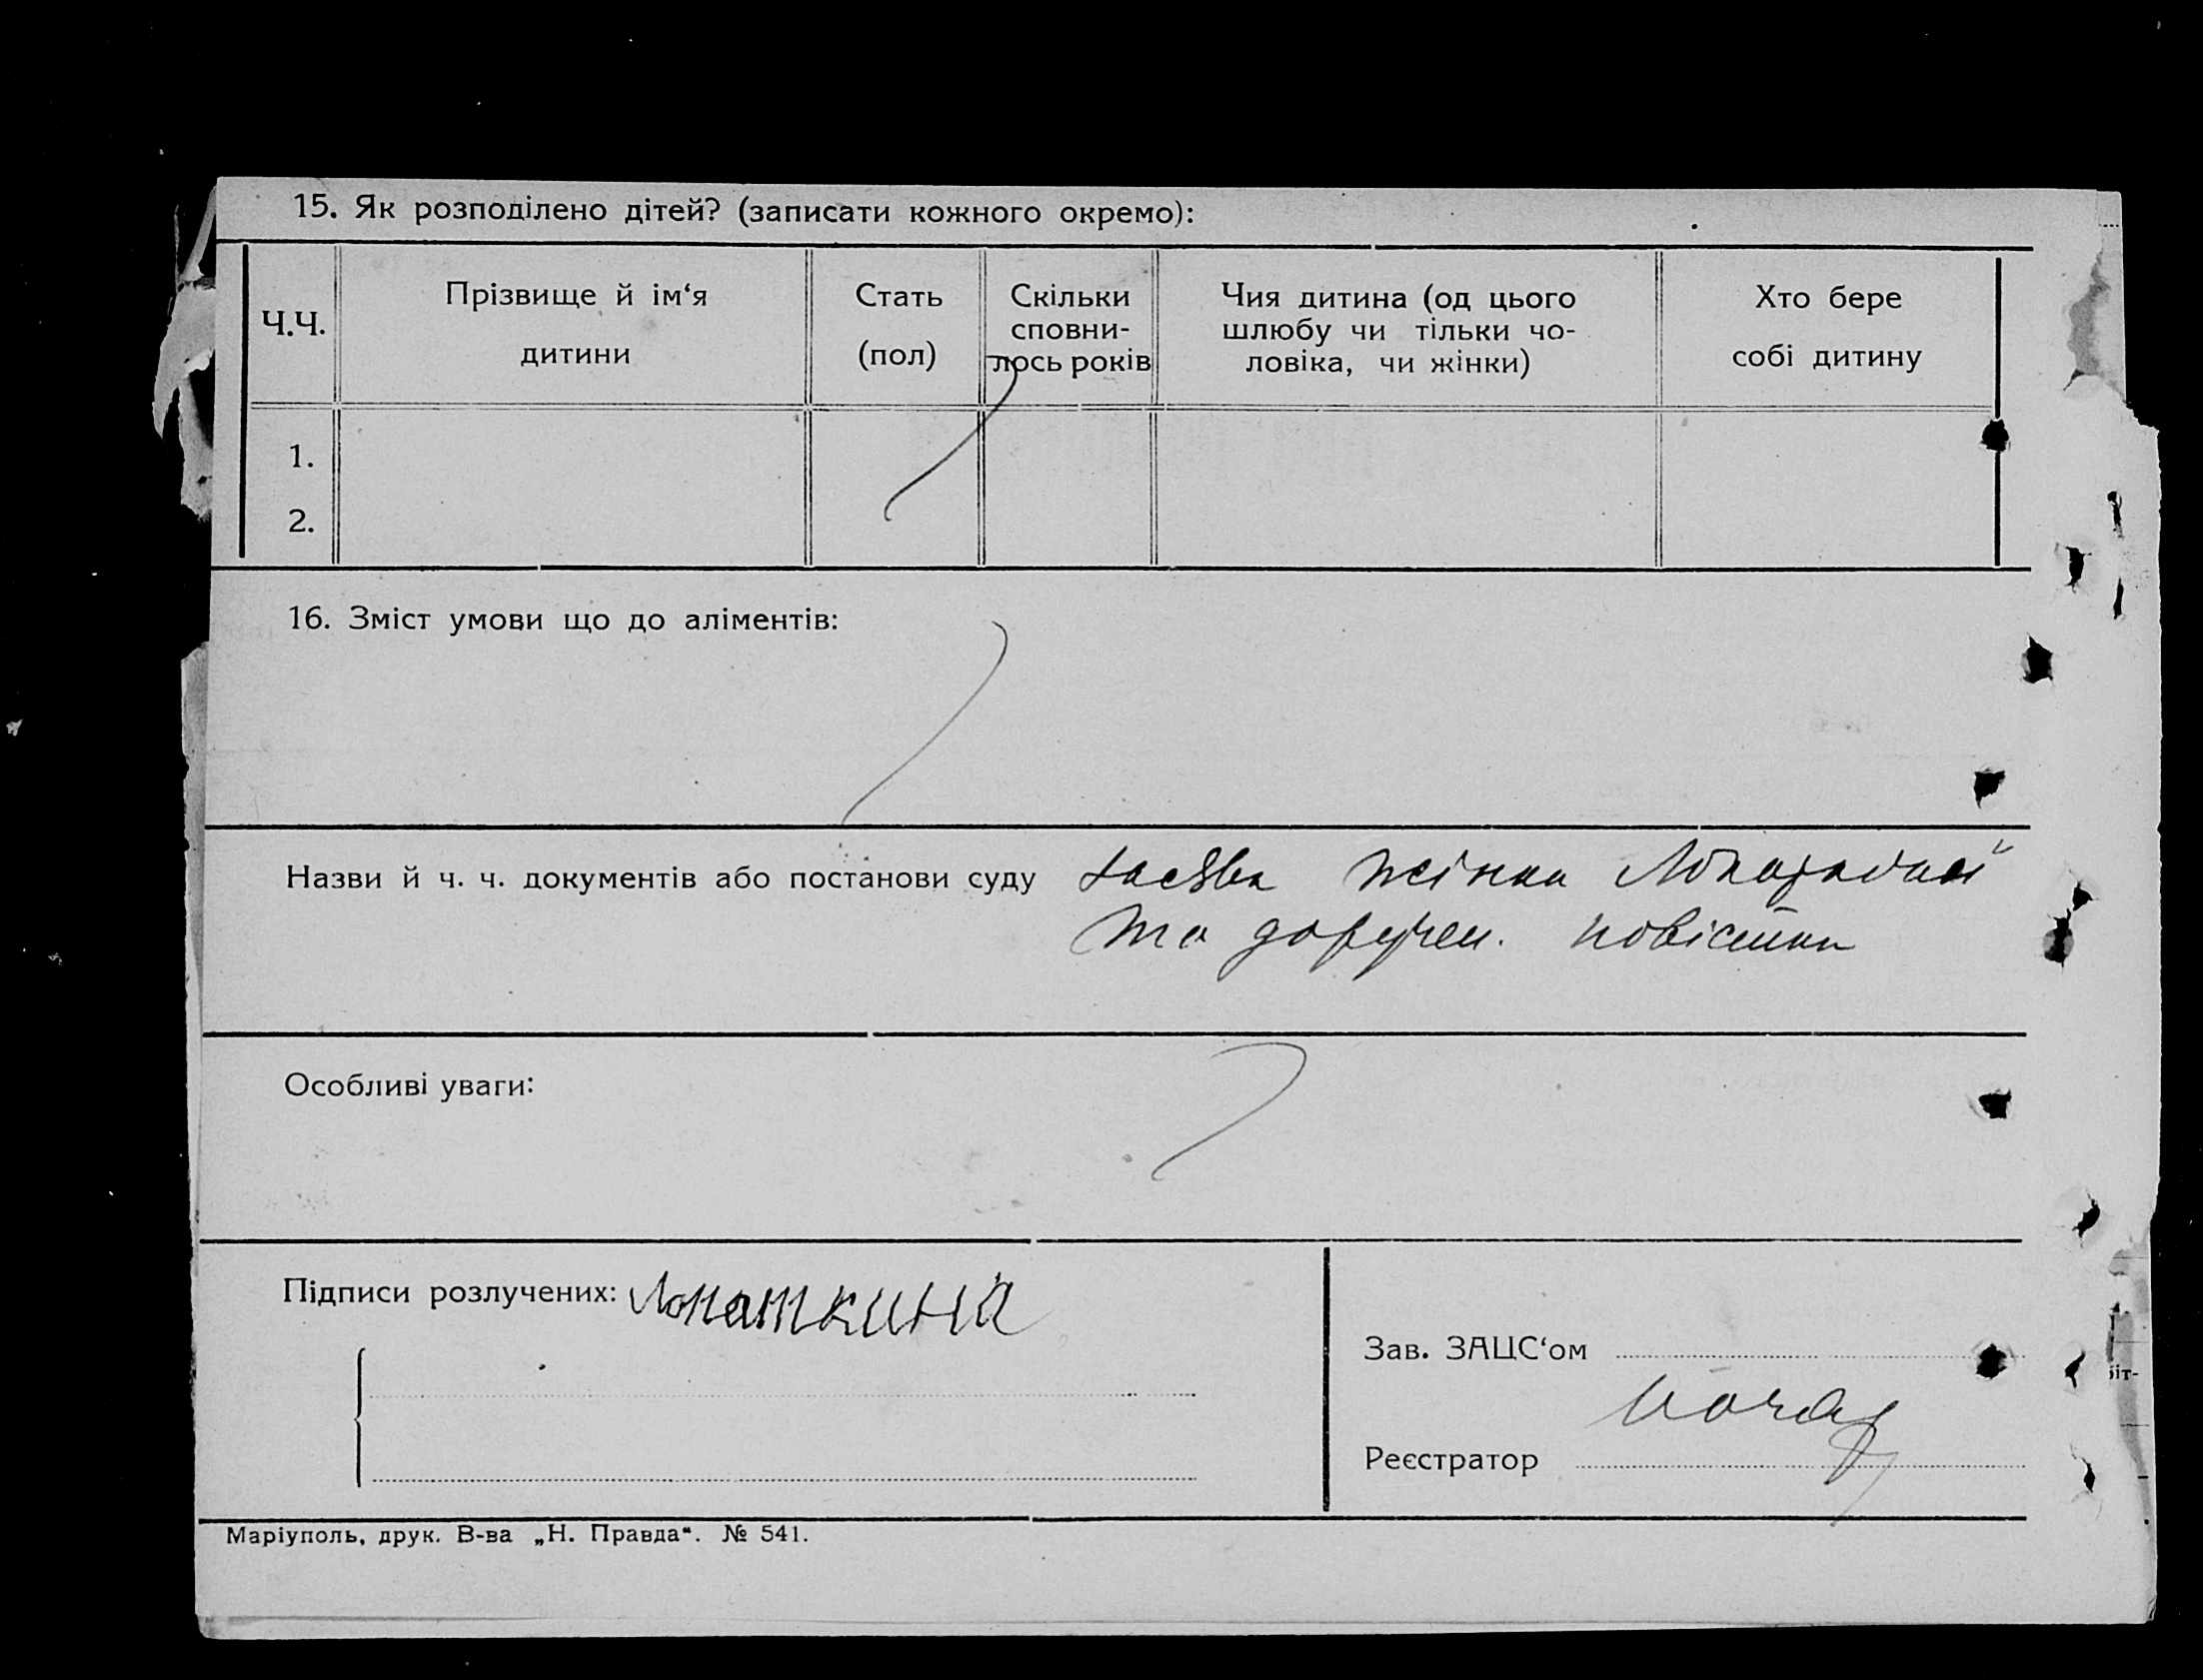 15. Як розподілено дітей? (записати кожного окремо):
Ч.Ч.
Прізвище й ім‘я
дитини
Стать
(пол)
Скільки
сповни-
лось років
Чия дитина (од цього
шлюбу чи тільки чо-
ловіка, чи жінки)
Хто бере
собі дитину
1.
2.
16. Зміст умови що до аліментів:
Назви й ч. ч. документів або постанови суду заява жінки
та доручен. повістки
Особливі уваги:
Підписи розлучених: Лопаткина
Зав. ЗАЦС‘ом
Реєстратор
Маріуполь, друк. В-ва „Н. Правда“. № 541.